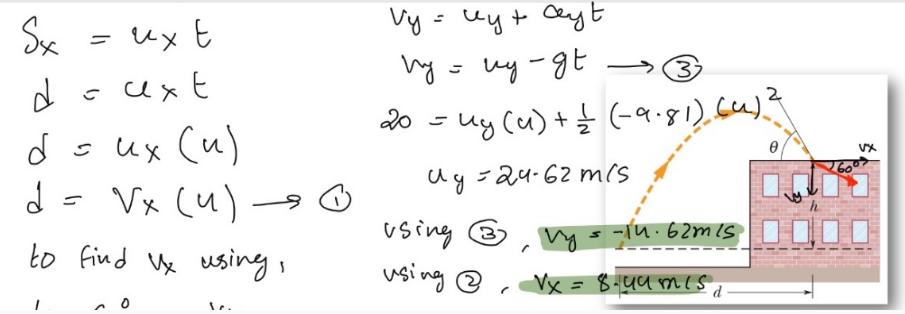 Sx = ux t
d = ux t
d = ux (4)
d = Vx (4) → ①
to find Vx using,
Vy = uy + ay t
Vy = uy - gt → ③
20 = uy (4) + 1/2 (-9.81) (4)²
uy = 24.62 m/s
using ③, Vy = -14.62 m/s
using ②, Vx = 8.44 m/s
θ
Vx
60°
Vy
h
d